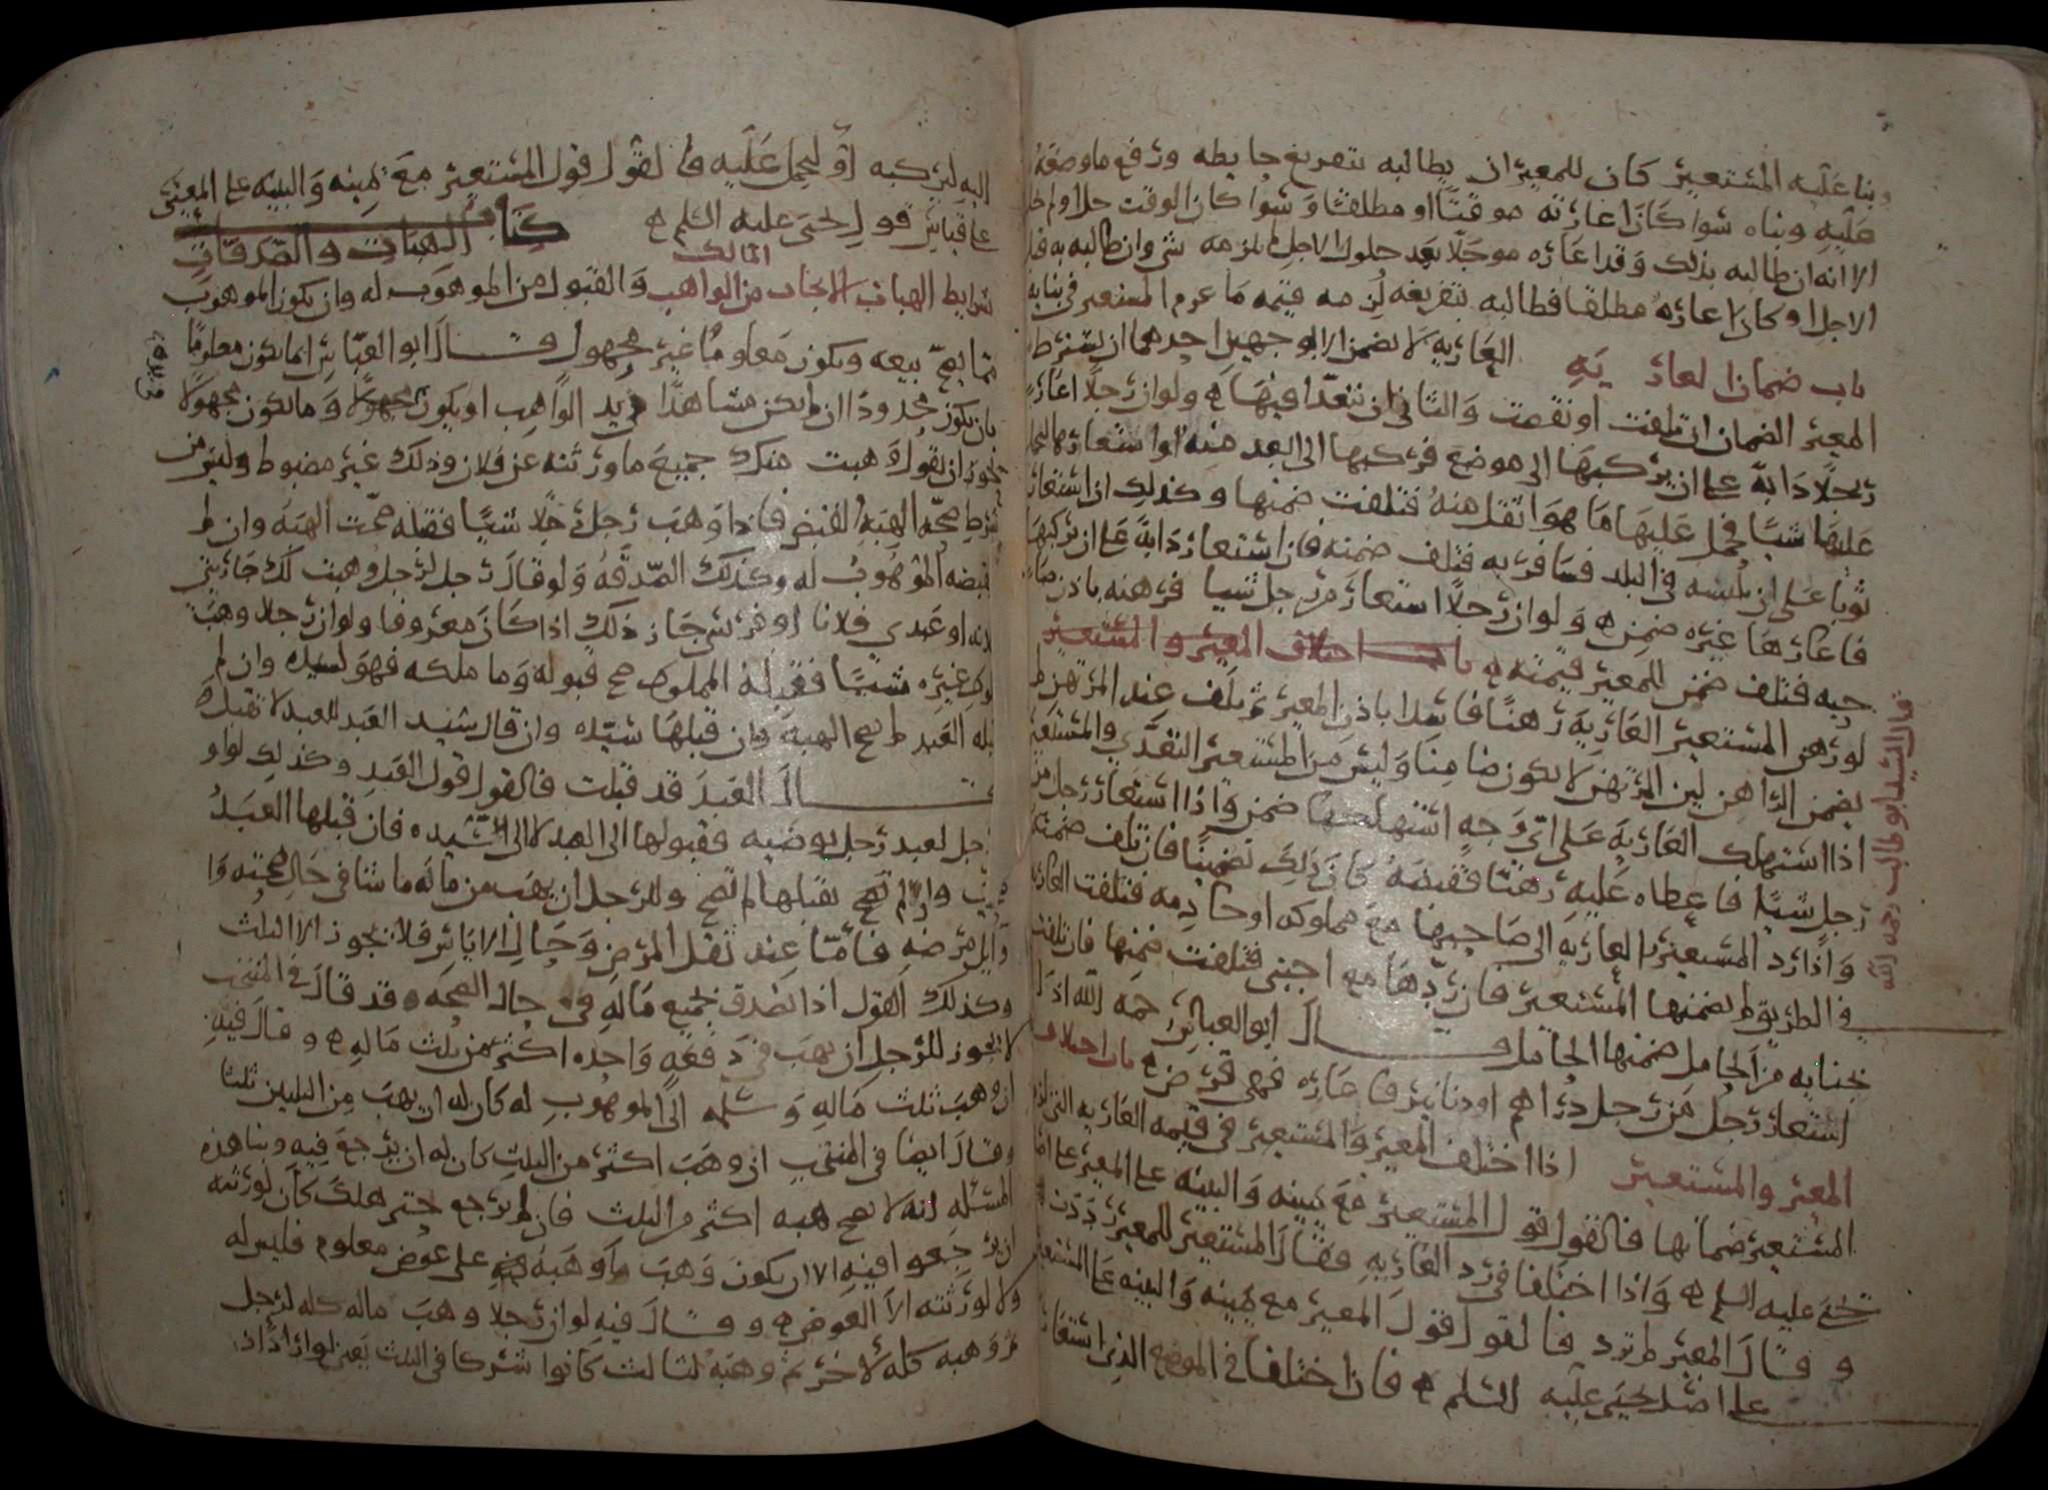 وبنا عليه المستعير كان للمعير ان يطالبه بتفريغ حايطه ورفع ما وضعه
عليه وبناه سوا كانت اعارته موقتا او مطلقتا وسوا كان الوقت حلا او لم
الا انه ان طالبه بذلك وقد اعاره موجلا بعد حلول الاجل لم يلزمه شي وان طالبه به قبل
الاجل او كان اعاره مطلقا فطالبه بتفريغه لزمه قيمه ما غرم المستعير في بنايه
باب ضمان العاريه العاريه لا تضمن الا بوجهين احدهما ان يشترط
المعير الضمان ان تلفت او نقصت والثاني ان يتعدا فيها ولو ان رجلا اعار
رجلا دابه على ان يركبها الى موضع فركبها الى ابعد منه او استعارها ليحمل
عليها شيا فحمل عليها ما هو اثقل منه فتلفت ضمنها وكذلك اذا استعار
ثوبا على ان يلبسه في البلد فسافر به فتلف ضمنه فان استعار دابة على ان يركبها
فاعارها غيره ضمن ولو ان رجلا استعار من رجل شيا فرهنه باذن صا
حبه فتلف ضمن للمعير قيمته باب اختلاف المعير والمستعير
لو رهن المستعير العاريه رهنا فاسدا باذن المعير ثم تلف عند المرتهن لم
يضمن الراهن لان المرتهن لا يكون ضامنا وليس من المستعير التعدي والمستعير
اذا استهلك العاريه على اي وجه استهلكها ضمن واذا استعار رجل من
رجل شيا فاعطاه عليه رهنا فقبضه كان ذلك تضمينا فان تلف ضمنه
واذا رد المستعير العاريه الى صاحبها مع مملوكه او خادمه فتلفت العاريه
في الطريق لم يضمنها المستعير فان ردها مع اجنبي فتلفت ضمنها فان تلفت
بجنايه من الحامل ضمنها الحامل قال ابو العباس رحمه الله اذا
استعار رجل من رجل دراهم او دنانير فاعاره فهي قرض باب اختلاف
المعير والمستعير اذا اختلف المعير والمستعير في قيمه العاريه التي
المستعير ضمانها فالقول قول المستعير مع يمينه والبينه على المعير على
يحيى عليه السلم واذا اختلفا في رد العاريه فقال المستعير للمعير رددت
وقال المعير لم ترد فالقول قول المعير مع يمينه والبينه على المستعير
على اصل يحيى عليه السلم فان اختلفا في الموضع الذي استعار
قال السيد ابو طالب رحمه الله
اليه ليركبه او ليحمل عليه فالقول قول المستعير مع يمينه والبينه على المعير
على قياس قول يحيى عليه السلم كتاب الهبات والصدقات
المالك
شرايط الهبات الايجاب من الواهب والقبول من الموهوب له وان يكون الموهوب
مما يصح بيعه ويكون معلوما غير مجهول قال ابو العباس انما يكون معلوما
بان يكون محدودا ان لم يكن مشاهدا في يد الواهب او يكون مجهولا وما يكون مجهولا
نحو ان يقول وهبت منك جميع ما ورثته عن فلان وذلك غير مضبوط وليس من
شرط صحه الهبه القبض فاذا وهب رجل رجلا شيا فقبله صحت الهبه وان لم
يقبضه الموهوب له وكذلك الصدقه ولو قال رجل لرجل وهبت لك جاريتي
فلانه او عبدي فلانا او فرسي جاز ذلك اذا كان معروفا ولو ان رجلا وهب
مملوك غيره شيا فقبله المملوك صح قبوله وما ملكه فهو لسيده وان لم
يقبله العبد لم تصح الهبه وان قبلها سيده وان قال سيد العبد للعبد لا تقبل
فقال العبد قد قبلت فالقول قول العبد وكذلك لو او
رجل لعبد رجل بوصيه فقبولها الى العبد لا الى سيده فان قبلها العبد
صحت وان لم يقبلها لم تصح وللرجل ان يهب من ماله ما شا في حال صحته وا
وايل مرضه فاما عند ثقل المرض وحال الاياس فلا يجوز الا الثلث
وكذلك القول اذا تصدق بجميع ماله في حال الصحه وقد قال في المنتخب
لا يجوز للرجل ان يهب في دفعه واحده اكثر من ثلث ماله وقال فيه
ان وهب ثلث ماله وسلمه الى الموهوب له كان له ان يهب من الثلثين ثلثا
وقال ايضا في المنتخب ان وهب اكثر من الثلث كان له ان يرجع فيه وبنا هذه
المسئله انه لا تصح هبه اكثر من الثلث فان لم يرجع حتى هلك كان لورثته
ان يرجعوا فيه الا ان يكون وهب ما وهبه على عوض معلوم فليس له
ولا لورثته الا العوض وقال فيه لو ان رجلا وهب ماله كله لرجل
ثم وهبه كله لاخر ثم وهبه لثالث كانوا شركا في الثلث يعني لو اراد